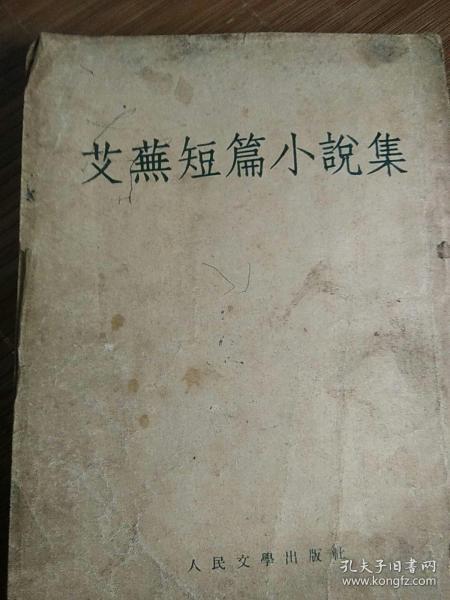 艾蕪短篇小說集
人民文學出版社
孔夫子旧书网
www.kongfz.com